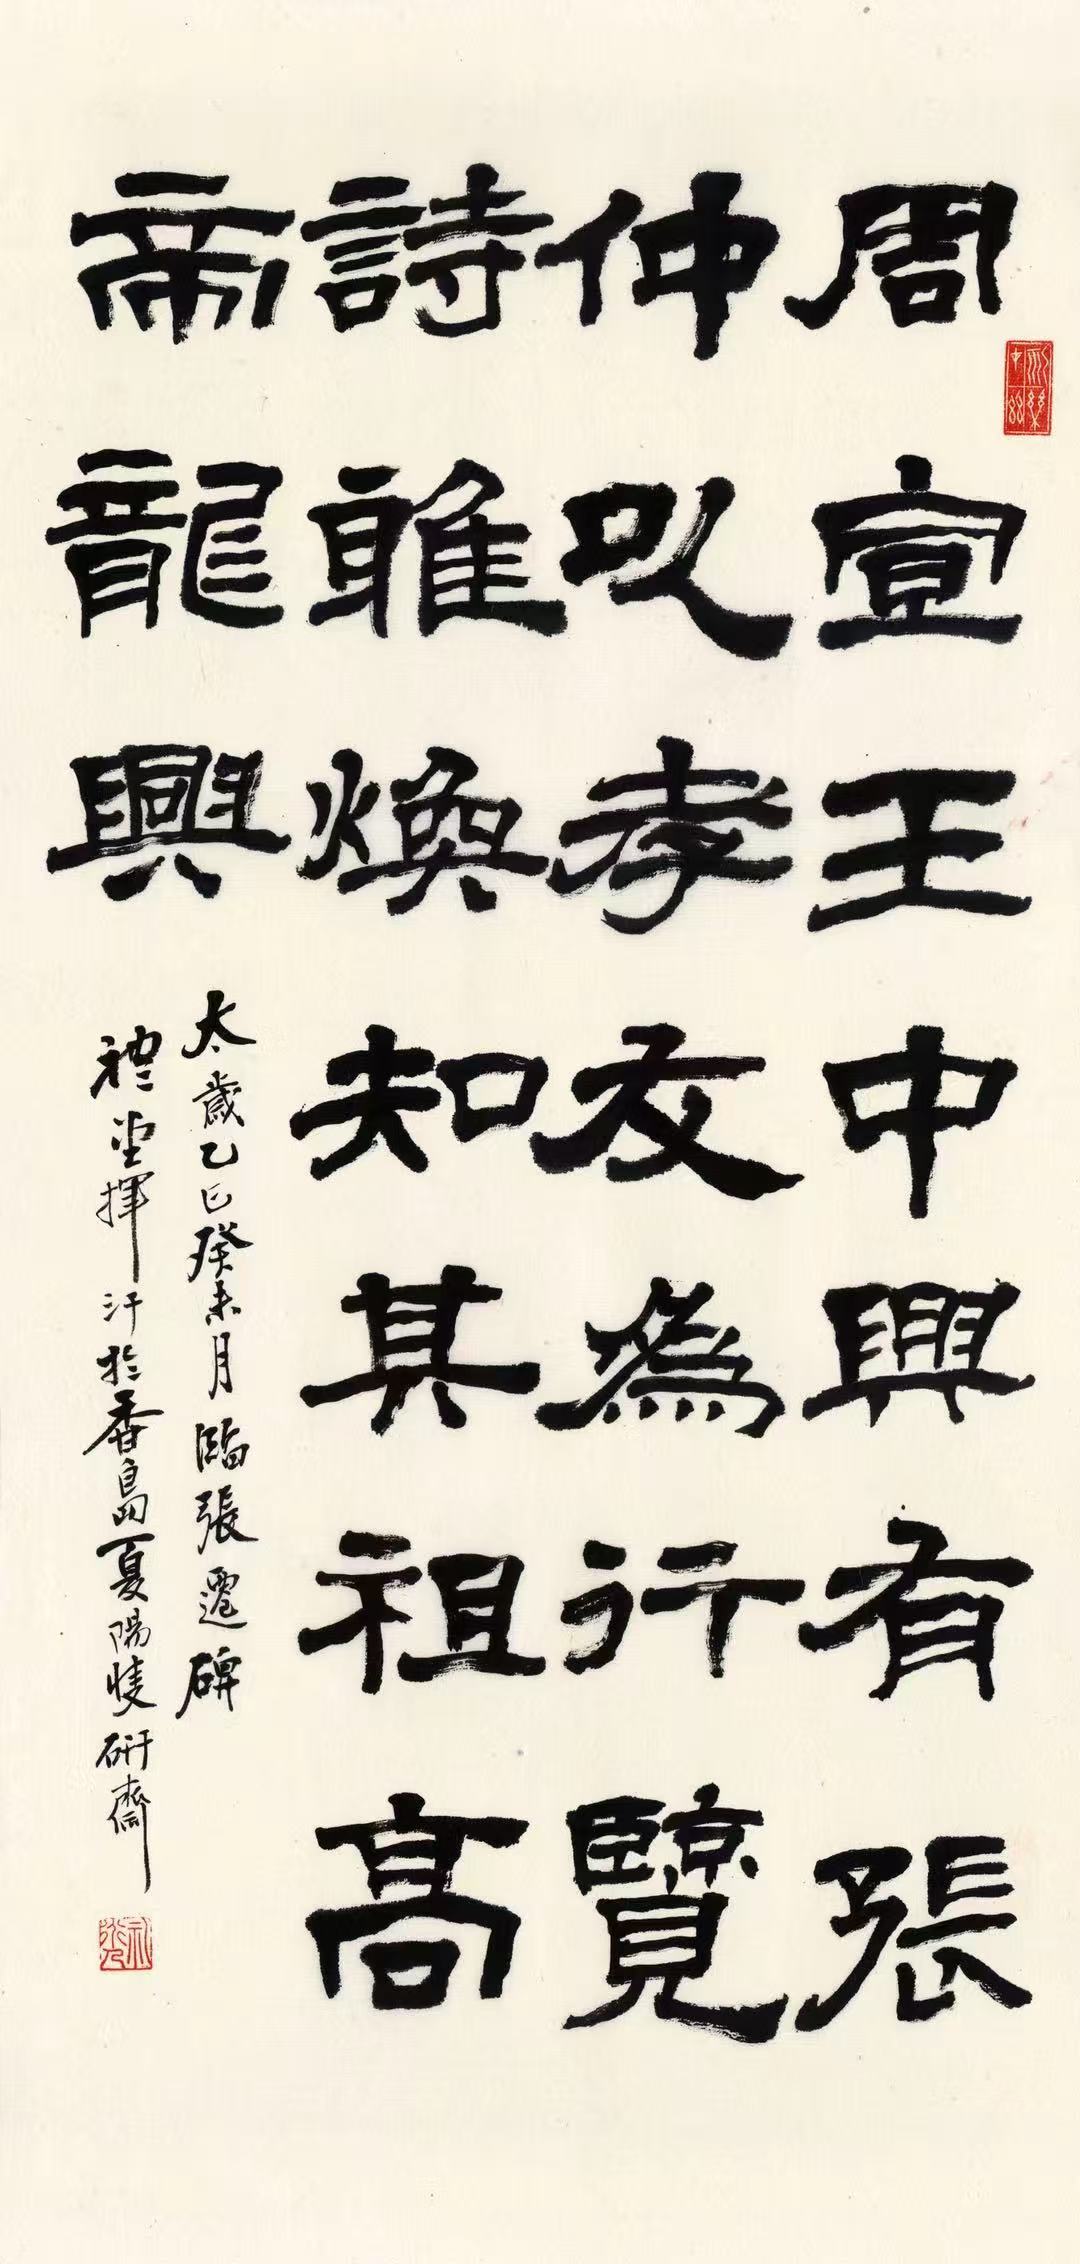 周宣王中興有張
仲以孝友為行覽
詩雅煥知其祖高
帝龍興
太歲乙巳癸未月臨張遷碑
禮堂揮汗於香島夏陽雙研齋